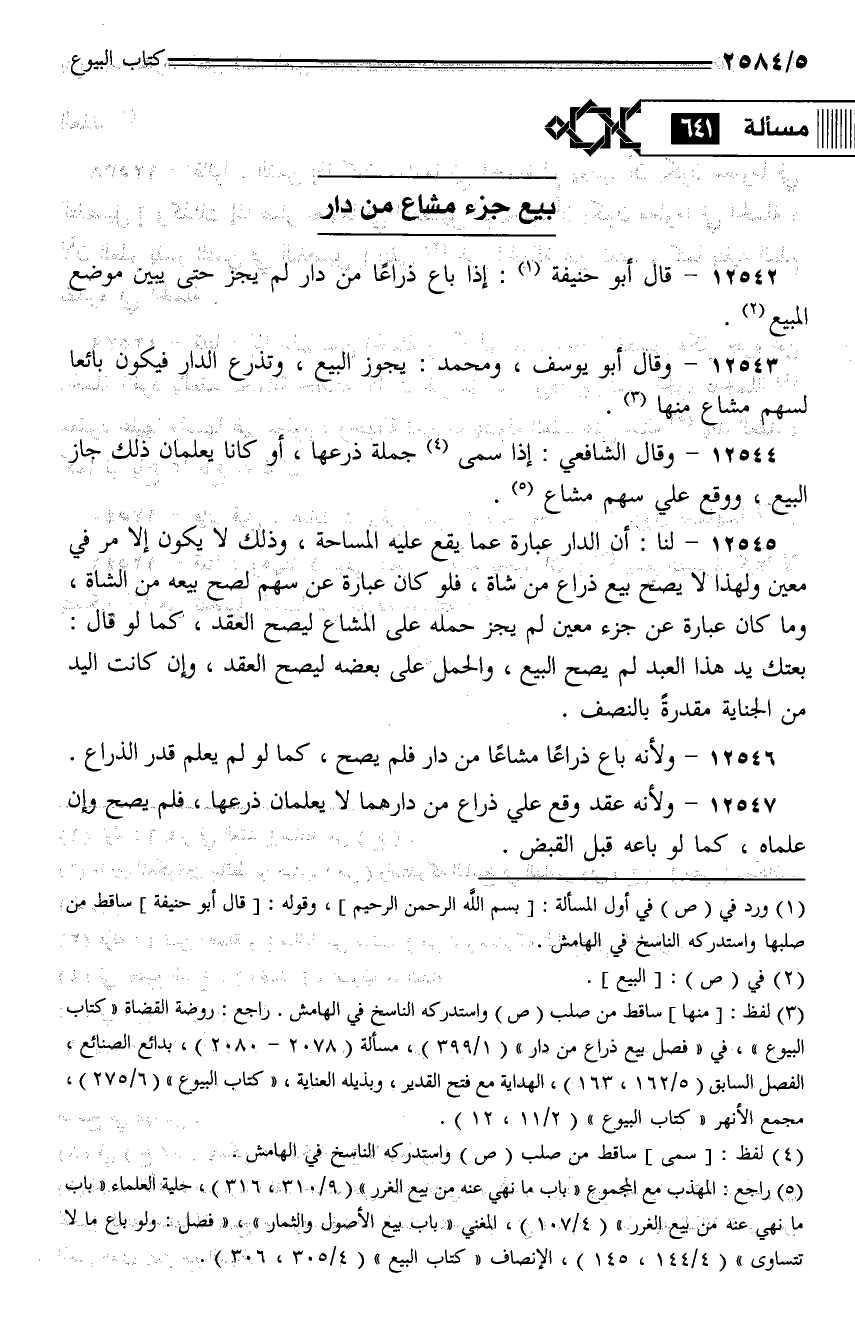 ٢٥٨٤/٥ كتاب البيوع
مسألة ٦٤١
بيع جزء مشاع من دار
١٢٥٤٢ - قال أبو حنيفة (١) : إذا باع ذراعًا من دار لم يجز حتى يبين موضع
المبيع (٢) .
١٢٥٤٣ - وقال أبو يوسف ، ومحمد : يجوز البيع ، وتذرع الدار فيكون بائعا
لسهم مشاع منها (٣) .
١٢٥٤٤ - وقال الشافعي : إذا سمى (٤) جملة ذرعها ، أو كانا يعلمان ذلك جاز
البيع ، ووقع علي سهم مشاع (٥) .
١٢٥٤٥ - لنا : أن الدار عبارة عما يقع عليه المساحة ، وذلك لا يكون إلا مر في
معين ولهذا لا يصح بيع ذراع من شاة ، فلو كان عبارة عن سهم لصح بيعه من الشاة ،
وما كان عبارة عن جزء معين لم يجز حمله على المشاع ليصح العقد ، كما لو قال :
بعتك يد هذا العبد لم يصح البيع ، والحمل على بعضه ليصح العقد ، وإن كانت اليد
من الجناية مقدرةً بالنصف .
١٢٥٤٦ - ولأنه باع ذراعًا مشاعًا من دار فلم يصح ، كما لو لم يعلم قدر الذراع .
١٢٥٤٧ - ولأنه عقد وقع علي ذراع من دارهما لا يعلمان ذرعها ، فلم يصح وإن
علماه ، كما لو باعه قبل القبض .
(١) ورد في ( ص ) في أول المسألة : [ بسم اللَّه الرحمن الرحيم ] ، وقوله : [ قال أبو حنيفة ] ساقط من
صلبها واستدركه الناسخ في الهامش .
(٢) في ( ص ) : [ البيع ] .
(٣) لفظ : [ منها ] ساقط من صلب ( ص ) واستدركه الناسخ في الهامش . راجع : روضة القضاة « كتاب
البيوع » ، في « فصل بيع ذراع من دار » ( ٣٩٩/١ ) ، مسألة ( ٢٠٧٨ - ٢٠٨٠ ) ، بدائع الصنائع ،
الفصل السابق ( ١٦٢/٥ ، ١٦٣ ) ، الهداية مع فتح القدير ، وبذيله العناية ، « كتاب البيوع » ( ٢٧٥/٦ ) ،
مجمع الأنهر « كتاب البيوع » ( ١١/٢ ، ١٢ ) .
(٤) لفظ : [ سمى ] ساقط من صلب ( ص ) واستدركه الناسخ في الهامش .
(٥) راجع : المهذب مع المجموع « باب ما نهي عنه من بيع الغرر » ( ٣١٠/٩ ، ٣١٦ ) ، حلية العلماء « باب
ما نهي عنه من بيع الغرر » ( ١٠٧/٤ ) ، المغني « باب بيع الأصول والثمار » ، « فصل : ولو باع ما لا
تتساوى » ( ١٤٤/٤ ، ١٤٥ ) ، الإنصاف « كتاب البيع » ( ٣٠٥/٤ ، ٣٠٦ ) .